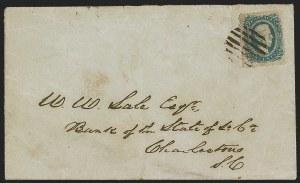 W. W. Sale Esqr.
Bank of the State of So. Ca
Charleston
S.C